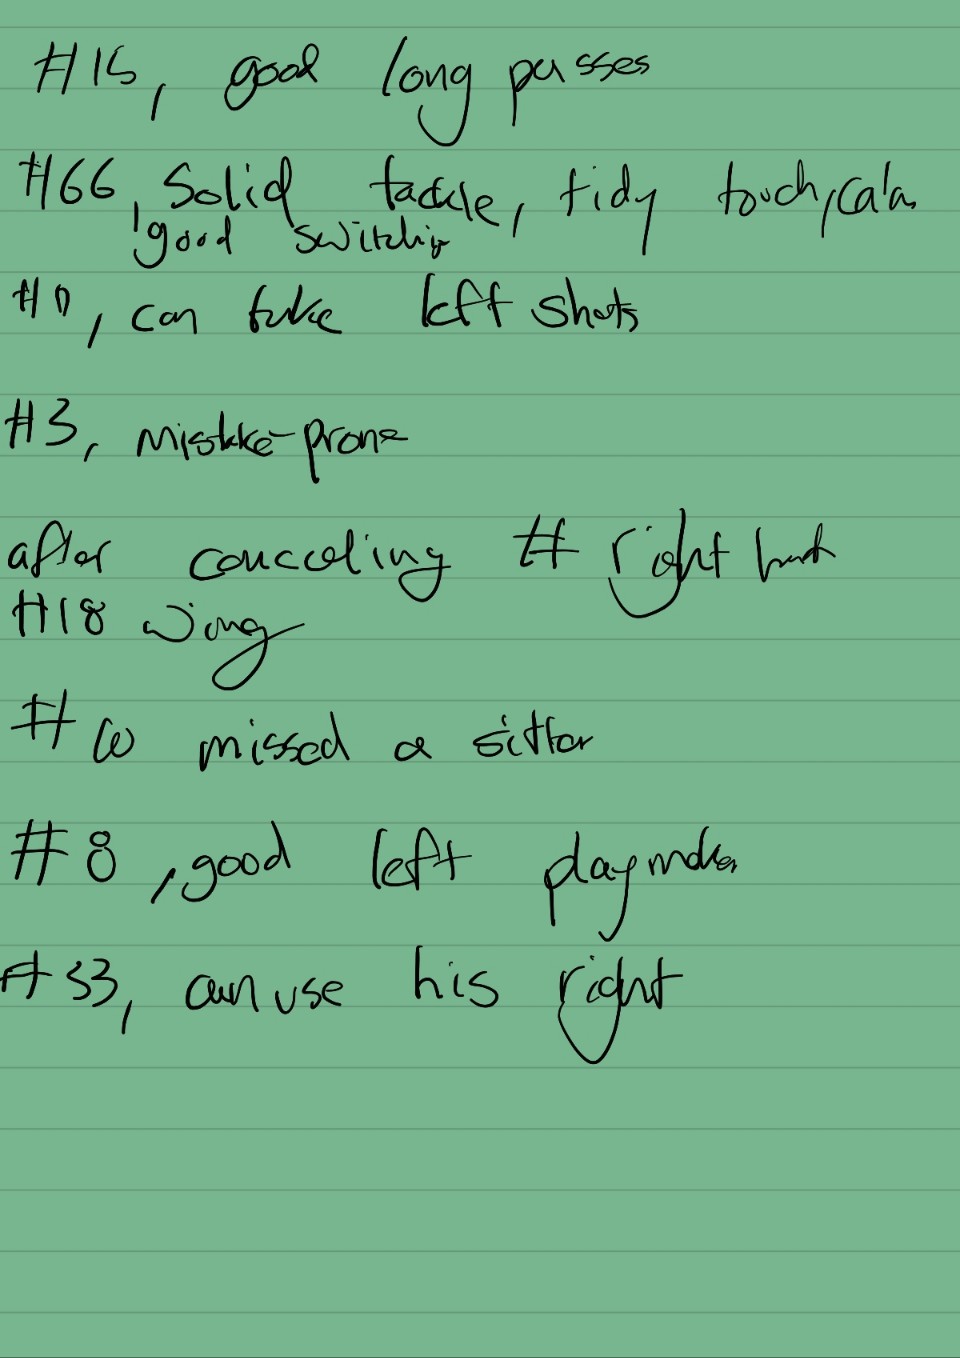 #15, good long passes
#66, Solid tackle, tidy touch, calm
, good switching
# , can take left shots
#3, mistake-prone
after conceeling # right
#18 wing
#10 missed a sitter
#8, good left playmaker
#33, can use his right